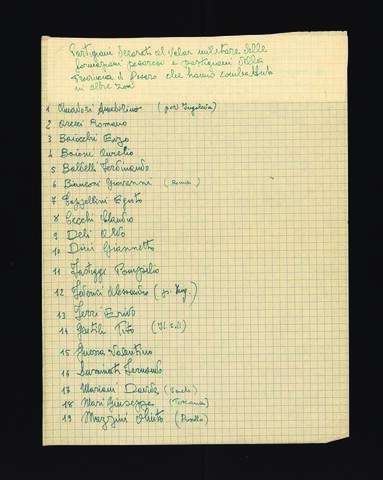 Partigiani decorati al valor militare delle
formazioni pesaresi e partigiani della
Provincia di Pesaro che hanno combattuto
in altre zone
1 Amadori Annibale (per
2 Arceci Romano
3 Baiocchi Enzo
4 Baioni Aurelio
5 Baldelli Ferdinando
6 Bianconi Giovanni
7 Cappellini Egisto
8 Cecchi Claudio
9 Deli Aldo
10 Dini Giannetto
11 Fastiggi Pompilio
12 Federici Alessandro
13 Ferri Enrico
14 Gentili Tito
15 Guerra Valentino
16 Fernando
17 Mariani Davide
18 Mari Giuseppe (Toscana)
19 Mazzini